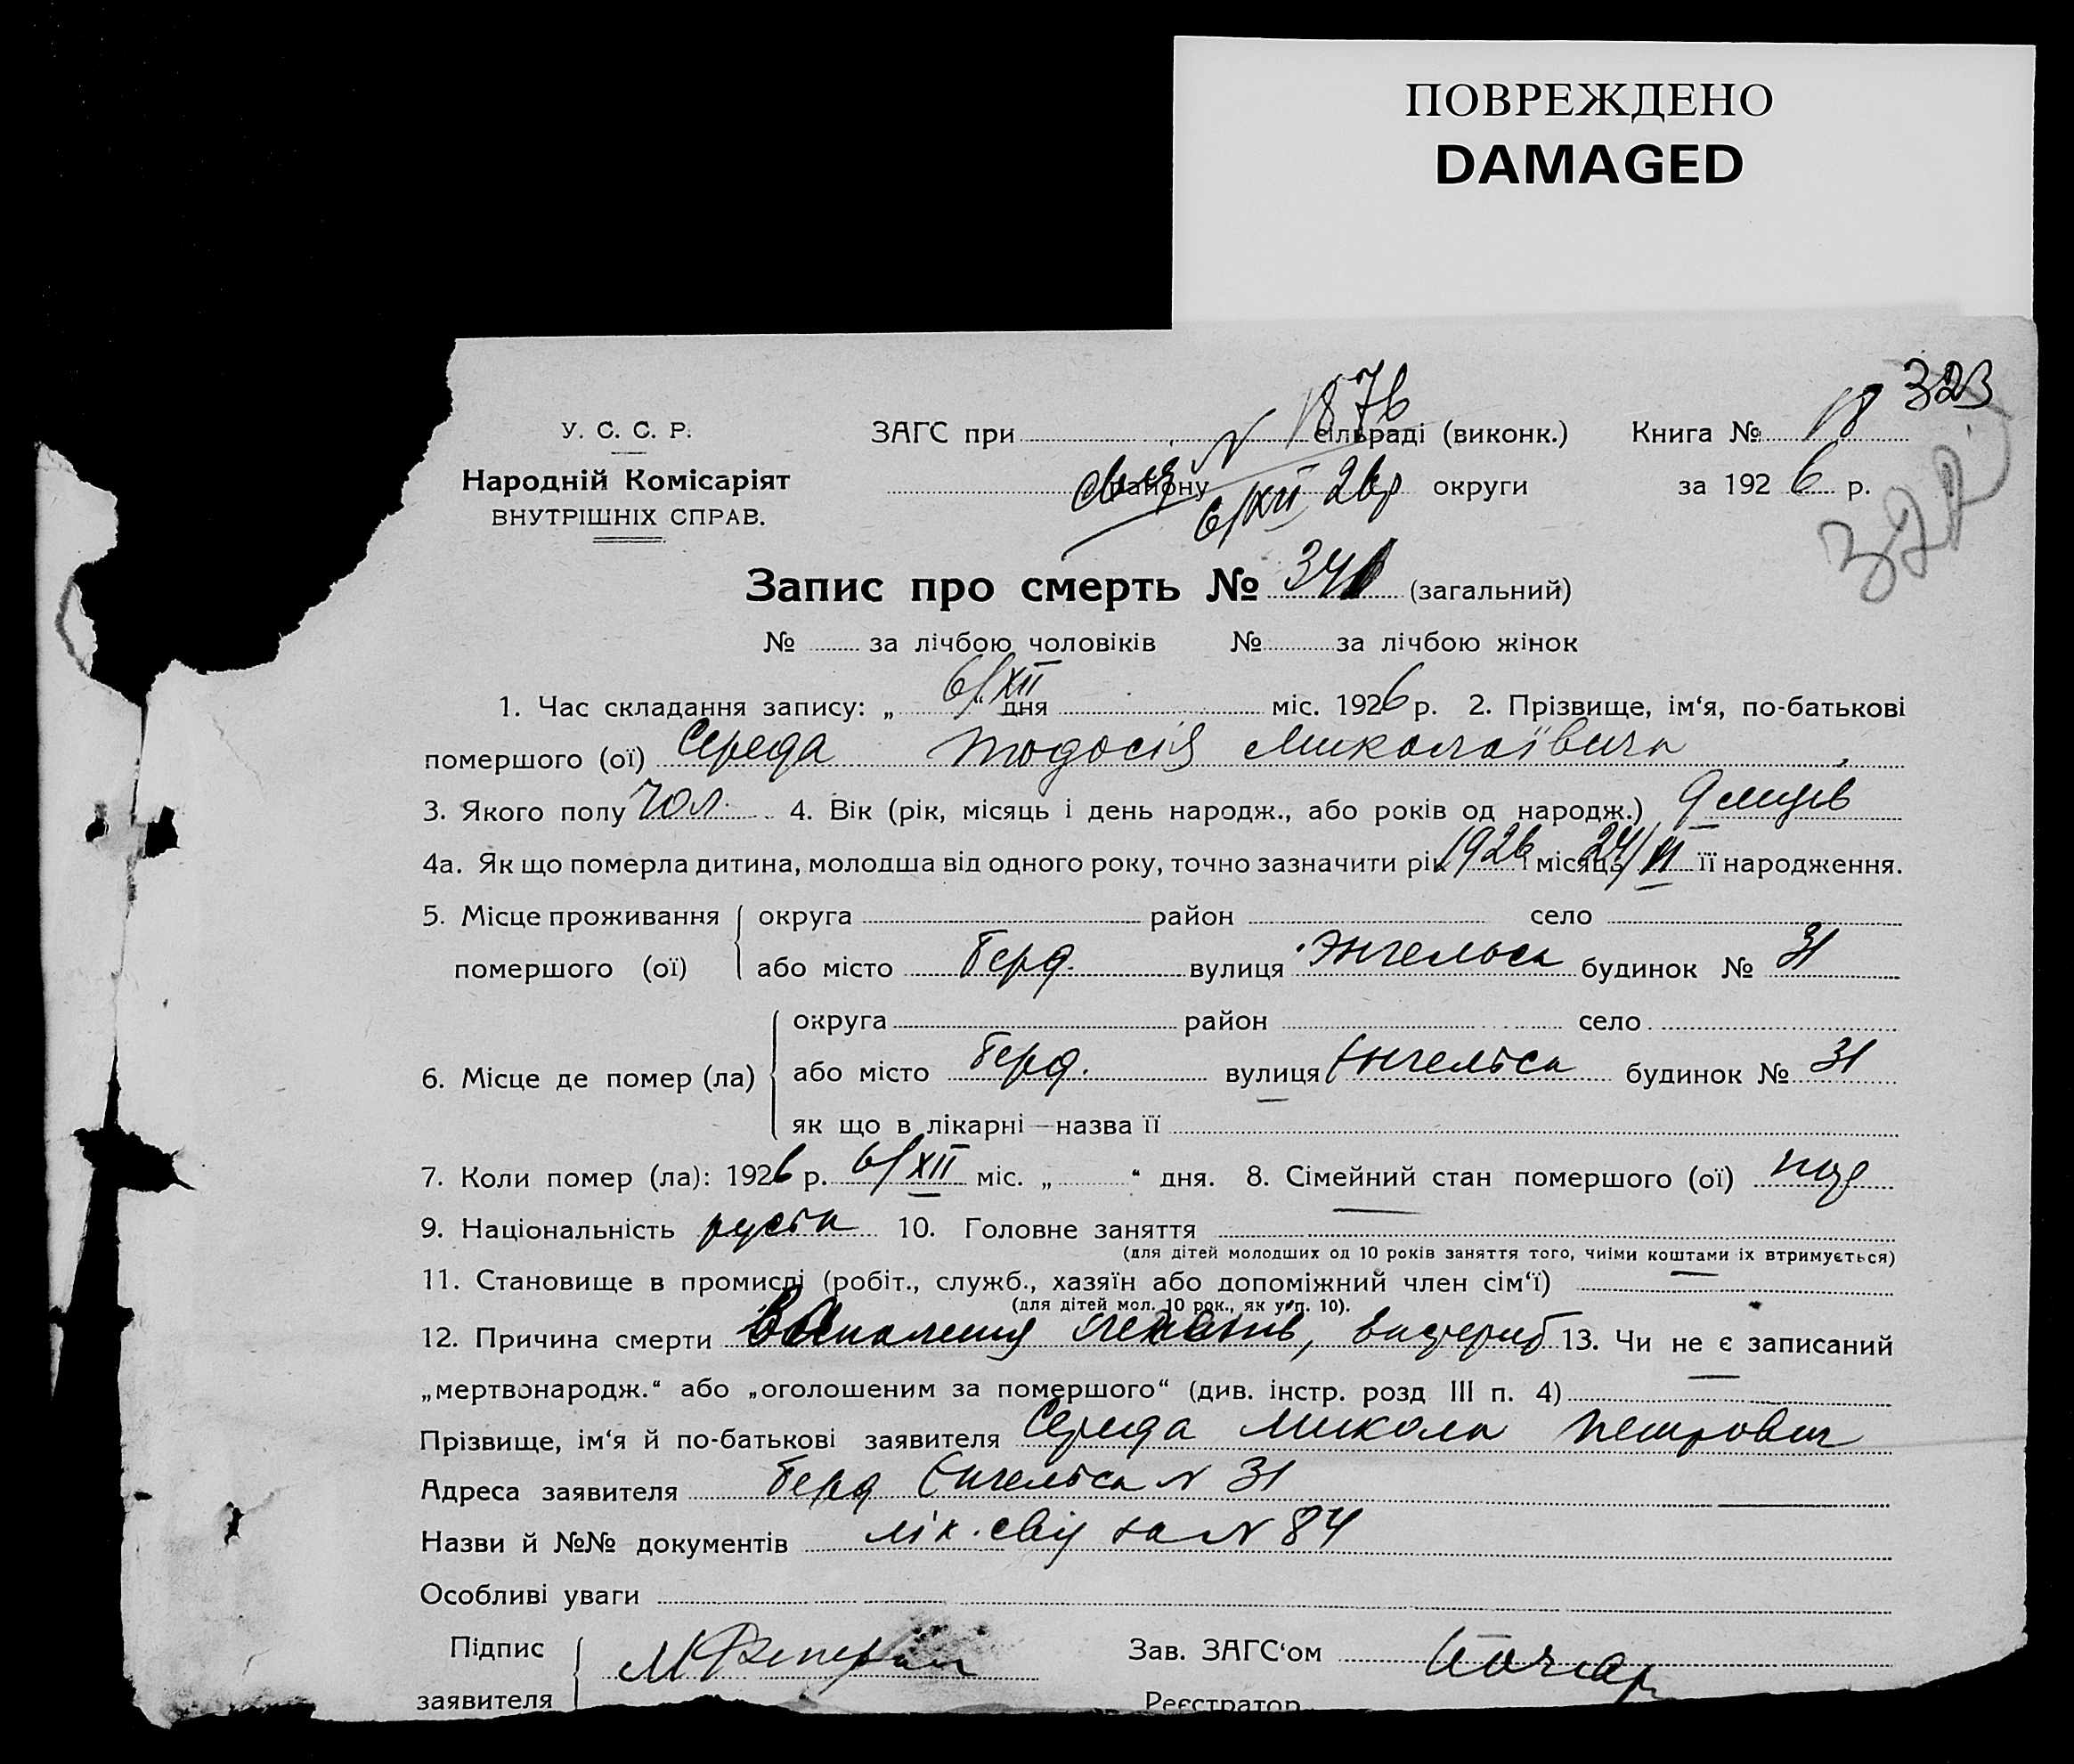 ПОВРЕЖДЕНО
DAMAGED
323
322
У. С. С. Р.
Народній Комісаріят
ВНУТРІШНІХ СПРАВ.
ЗАГС при сільраді (виконк.) Книга № 18
N 1876
району округи за 1926 р.
6/XII 26р
Запис про смерть № 341 (загальний)
№ за лічбою чоловіків № за лічбою жінок
1. Час складання запису: „ 6/XII “ дня міс. 1926 р. 2. Прізвище, ім‘я, по-батькові
помершого (ої) Середа Тодосія Миколаївича
3. Якого полу чол. 4. Вік (рік, місяць і день народж., або років од народж.) 9 місців
4а. Як що померла дитина, молодша від одного року, точно зазначити рік 1926 і місяць 24/II її народження.
5. Місце проживання округа район село
помершого (ої) або місто Берд. вулиця Энгельса будинок № 31
округа район село
6. Місце де помер (ла) або місто Берд. вулиця Енгельса будинок № 31
як що в лікарні—назва її
7. Коли помер (ла): 1926 р. 6/XII міс. „ “ дня. 8. Сімейний стан помершого (ої)
9. Національність руськ 10. Головне заняття
(для дітей молодших од 10 років заняття того, чиїми коштами їх втримується)
11. Становище в промислі (робіт., служб., хазяїн або допоміжний член сім‘ї)
(для дітей мол. 10 рок., як у п. 10).
12. Причина смерти Запалення легенів, 13. Чи не є записаний
„мертвонародж.“ або „оголошеним за помершого“ (див. інстр. розд III п. 4)
Прізвище, ім‘я й по-батькові заявителя Середа Микола Петрович
Адреса заявителя Берд Енгельса N 31
Назви й №№ документів лік. свід за N 84
Особливі уваги
Підпис Зав. ЗАГС‘ом
заявителя Реєстратор